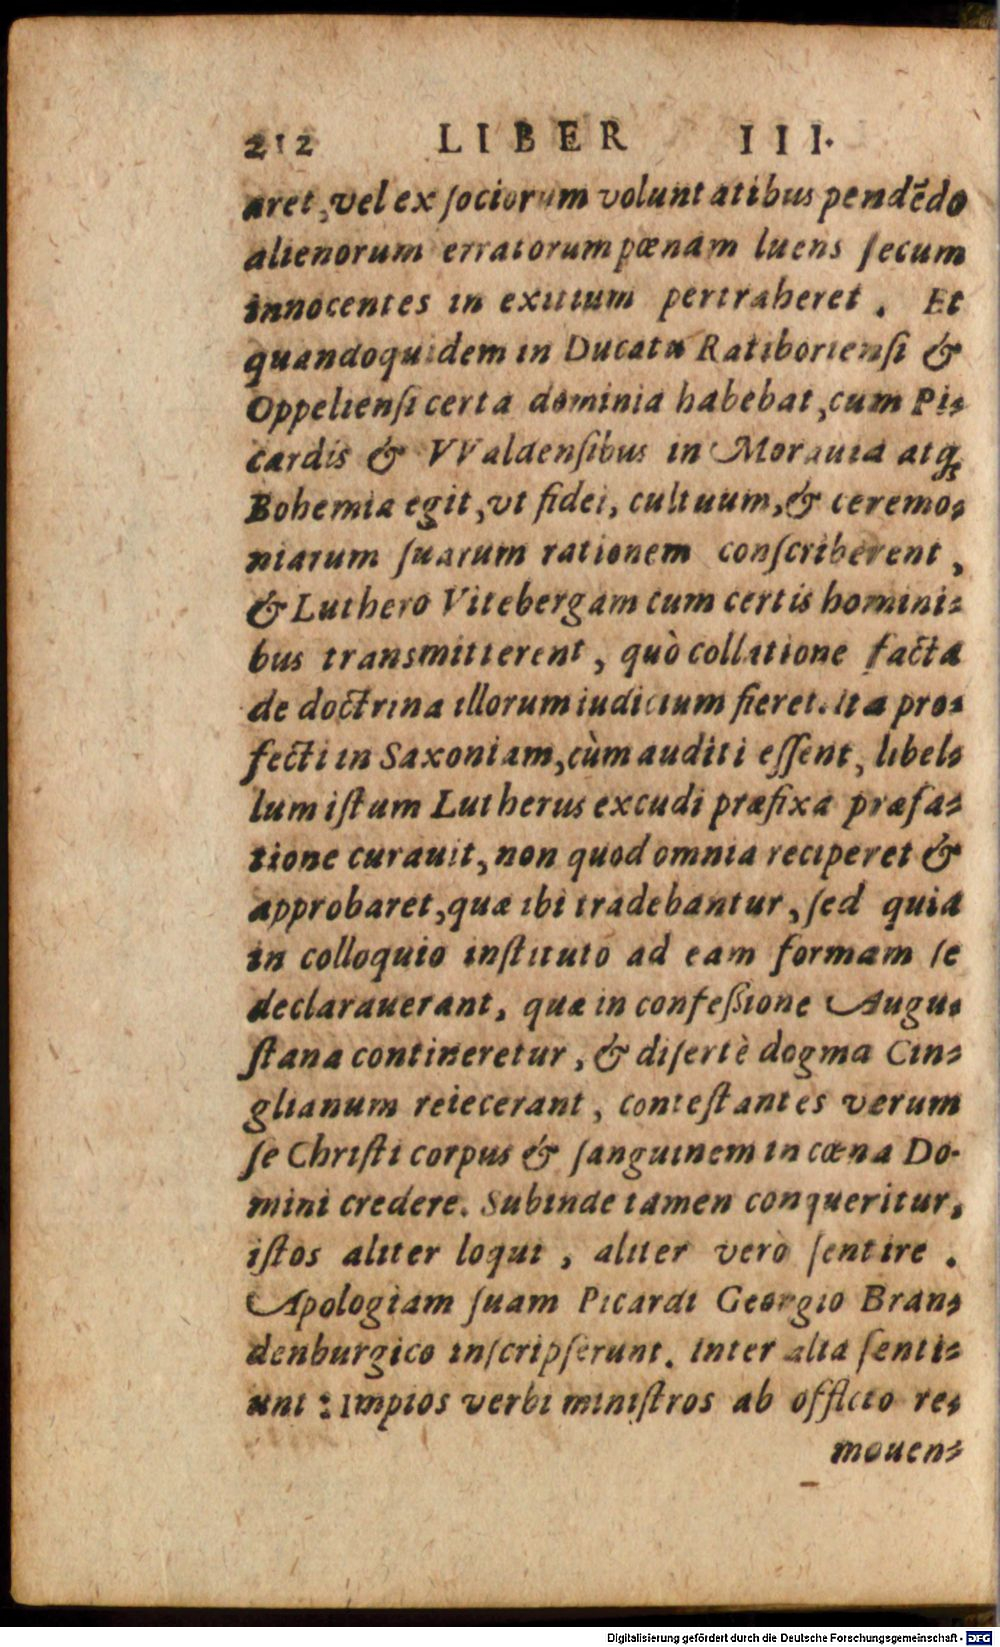 212 LIBER III.
aret, vel ex ſociorum voluntatibus pendẽdo
alienorum erratorum pœnam luens ſecum
innocentes in exitium pertraheret. Et
quandoquidem in Ducatu Ratiborienſi &
Oppelienſi certa dominia habebat, cum Pi-
cardis & VValdenſibus in Morauia atq́;
Bohemia egit, vt fidei, cultuum, & ceremo-
niarum ſuarum rationem conſcriberent,
& Luthero Vitebergam cum certis homini-
bus transmitterent, quò collatione facta
de doctrina illorum iudicium fieret. Ita pro-
fecti in Saxoniam, cùm auditi eſſent, libel-
lum iſtum Lutherus excudi præfixa præfa-
tione curauit, non quod omnia reciperet &
approbaret, quæ ibi tradebantur, ſed quia
in colloquio inſtituto ad eam formam ſe
declarauerant, quæ in confeßione Augu-
ſtana contineretur, & diſertè dogma Cin-
glianum reiecerant, conteſtantes verum
ſe Chriſti corpus & ſanguinem in cœna Do-
mini credere. Subinde tamen conqueritur,
iſtos aliter loqui, aliter verò ſentire.
Apologiam ſuam Picardi Georgio Bran-
denburgico inſcripſerunt. Inter alia ſenti-
unt: Impios verbi miniſtros ab officio re-
mouen-
Digitalisierung gefördert durch die Deutsche Forschungsgemeinschaft - DFG